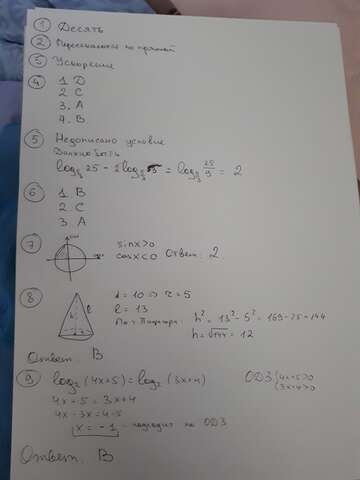 ① Десять
② Пересекаются по прямой
③ Ускорение
④ 1. D
2 C
3. A
4. B
⑤ Недописано условие
Должно быть
log 25 - 2log = log 25/9 = 2
⑥ 1 B
2 C
3 A
⑦ sinx>0
cosx<0 Ответ: 2
⑧ d = 10 => r = 5
l = 13
По т Пифагора h² = 13² - 5² = 169 - 25 = 144
h = √144 = 12
Ответ: B
⑨ log₂(4x+5) = log₂(3x+4) ОДЗ { 4x+5>0
3x+4>0
4x+5 = 3x+4
4x - 3x = 4-5
x = -1 - подходит по ОДЗ
Ответ: B